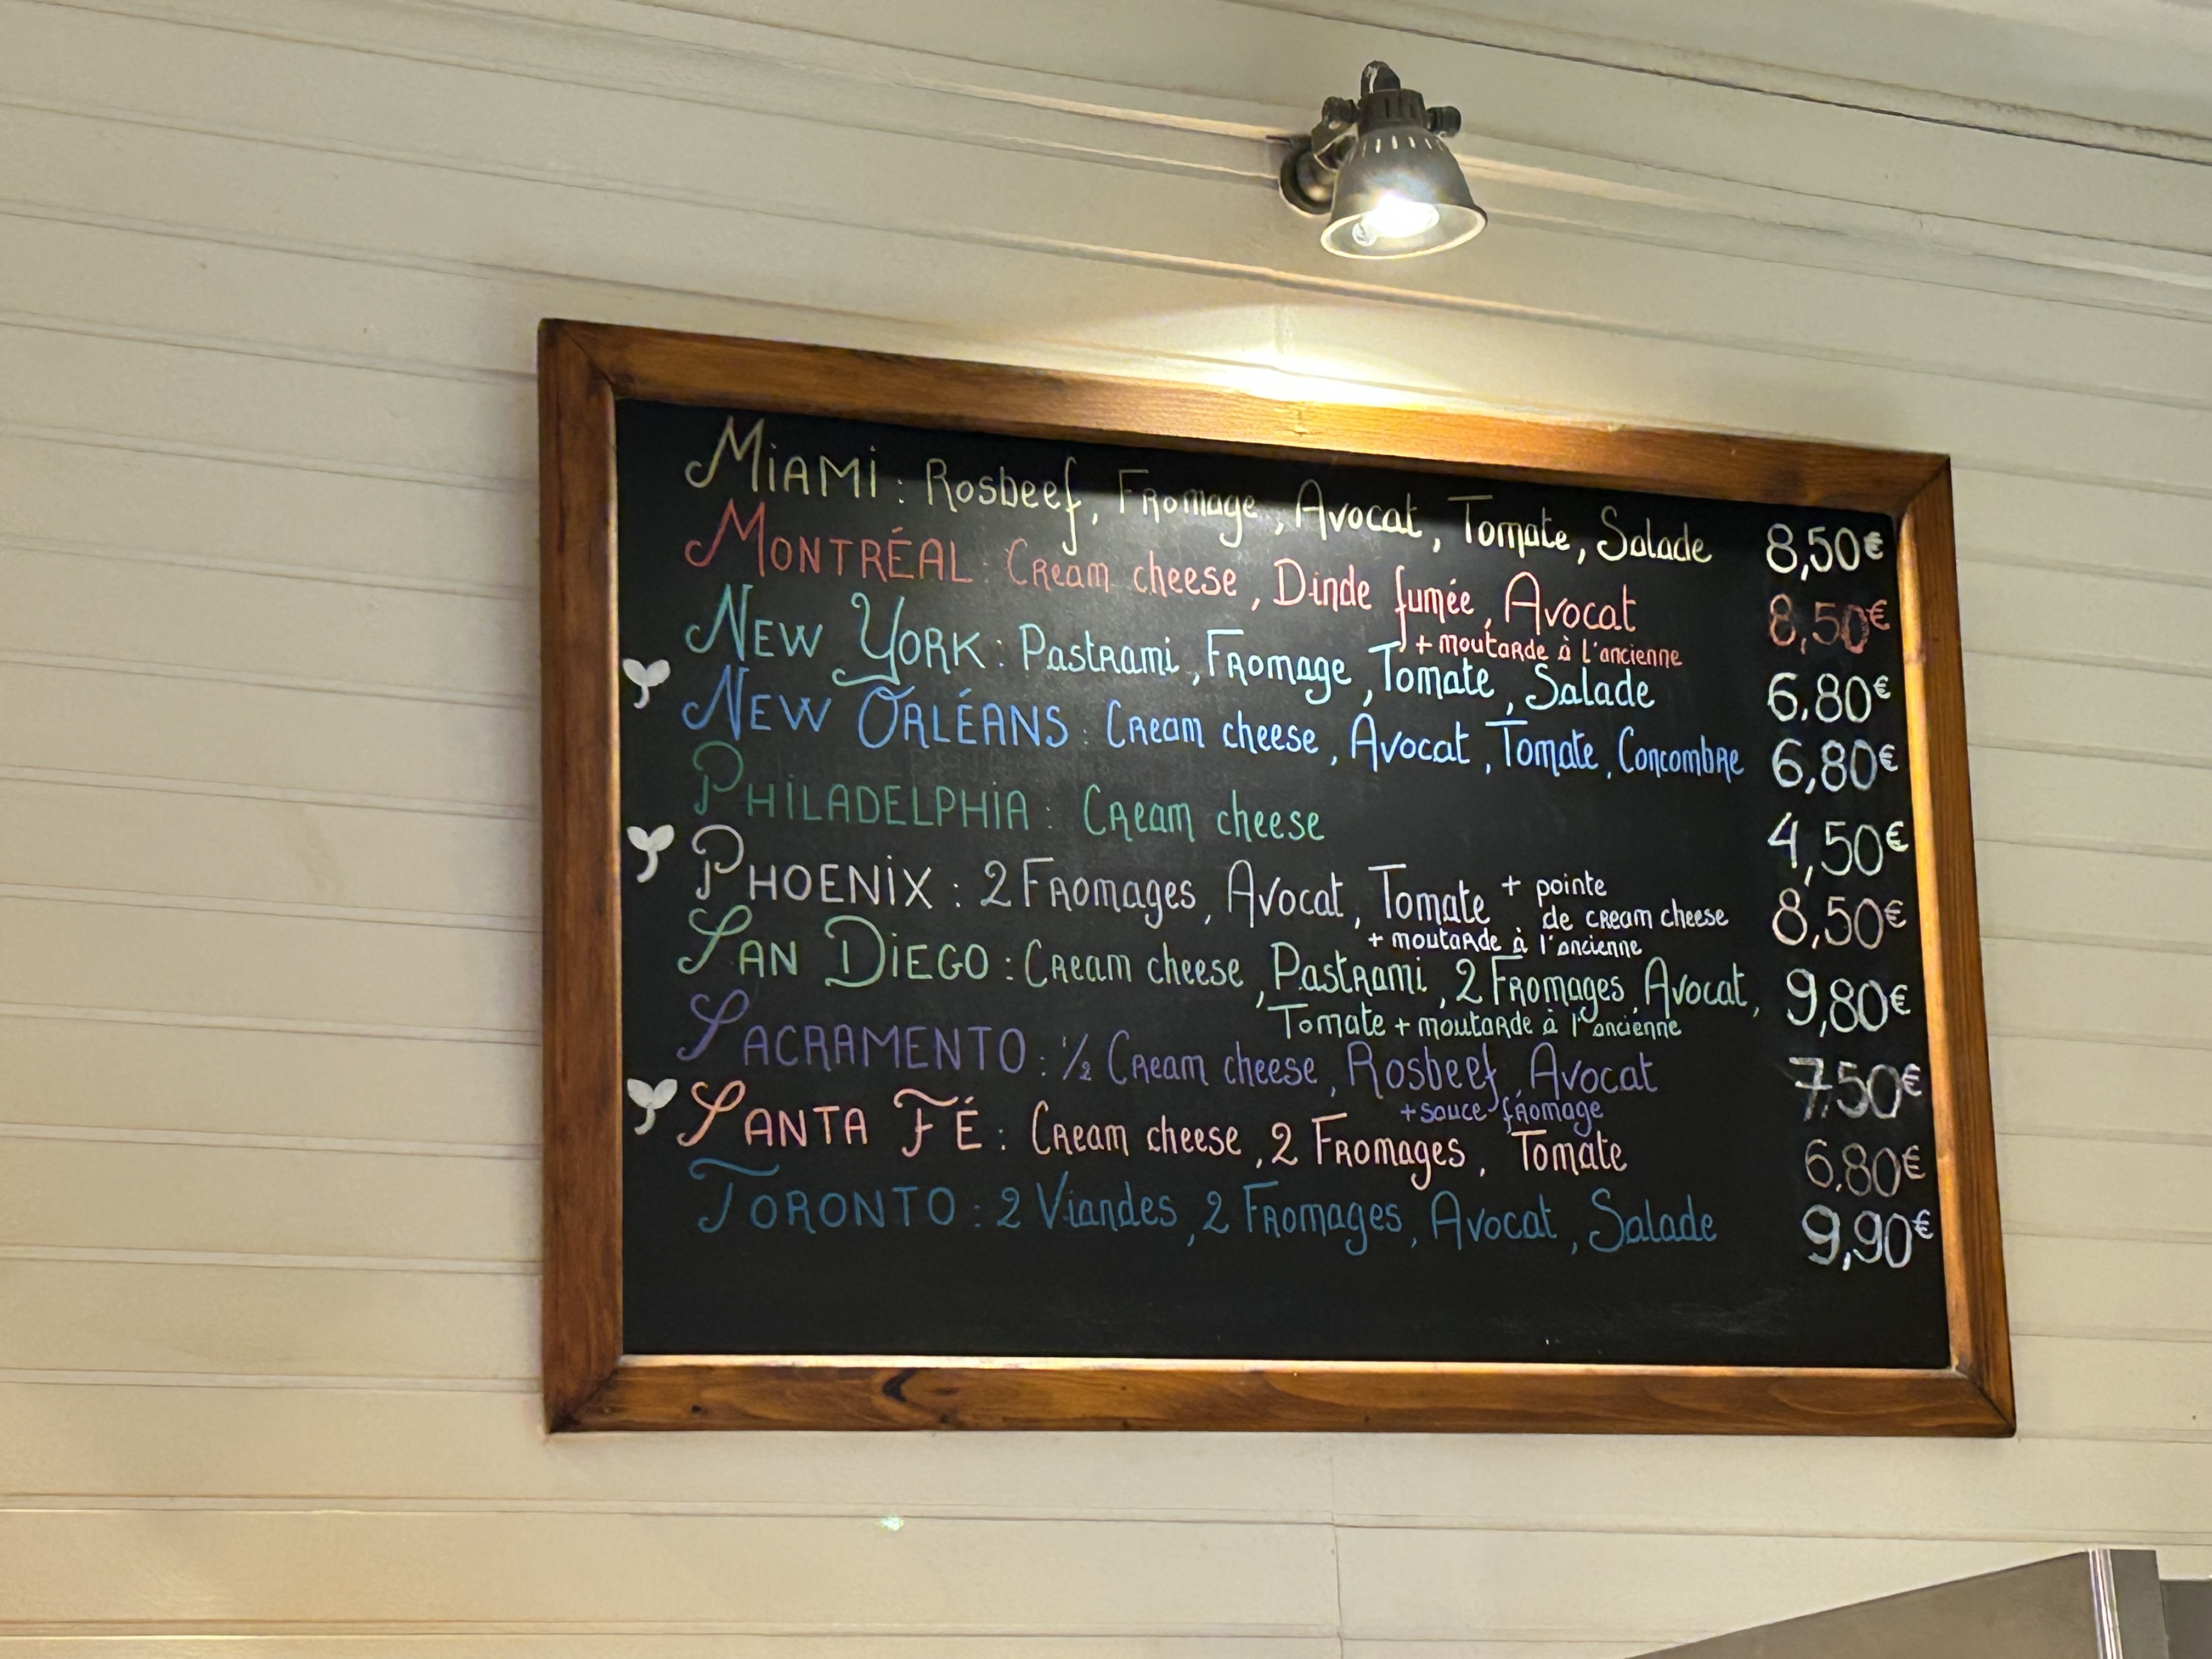 MIAMI : Rosbeef, Fromage, Avocat, Tomate, Salade 8,50€
MONTRÉAL : Cream cheese, Dinde fumée, Avocat 8,50€
+ moutarde à l'ancienne
NEW YORK : Pastrami, Fromage, Tomate, Salade 6,80€
NEW ORLÉANS : Cream cheese, Avocat, Tomate, Concombre 6,80€
PHILADELPHIA : Cream cheese 4,50€
PHOENIX : 2 Fromages, Avocat, Tomate + pointe 8,50€
de cream cheese
+ moutarde à l'ancienne
SAN DIEGO : Cream cheese, Pastrami, 2 Fromages, Avocat, 9,80€
Tomate + moutarde à l'ancienne
SACRAMENTO : 1/2 Cream cheese, Rosbeef, Avocat 7,50€
+ sauce fromage
SANTA FÉ : Cream cheese, 2 Fromages, Tomate 6,80€
TORONTO : 2 Viandes, 2 Fromages, Avocat, Salade 9,90€